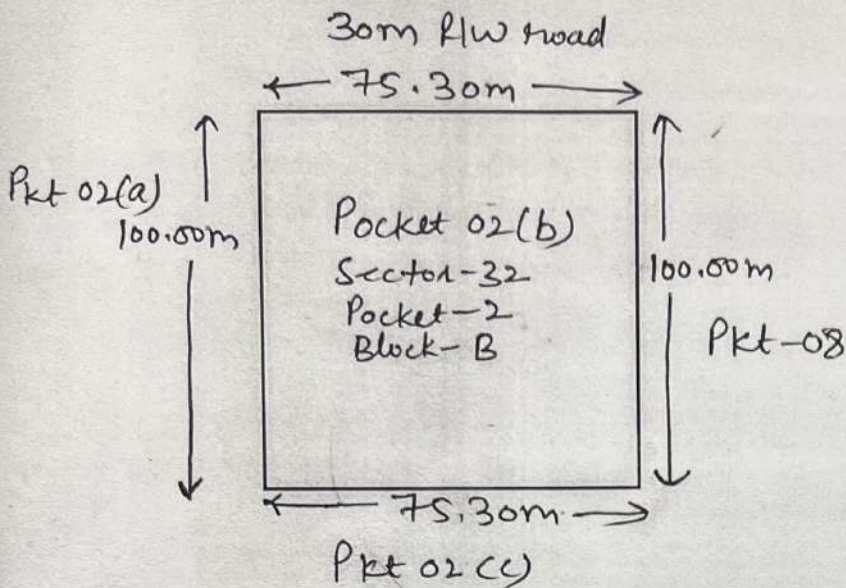 30m R/W road
75.30m
Pkt 02(a)
100.00m
Pocket 02(b)
Sector-32
Pocket-2
Block-B
100.00m
Pkt-08
75.30m
Pkt 02(c)